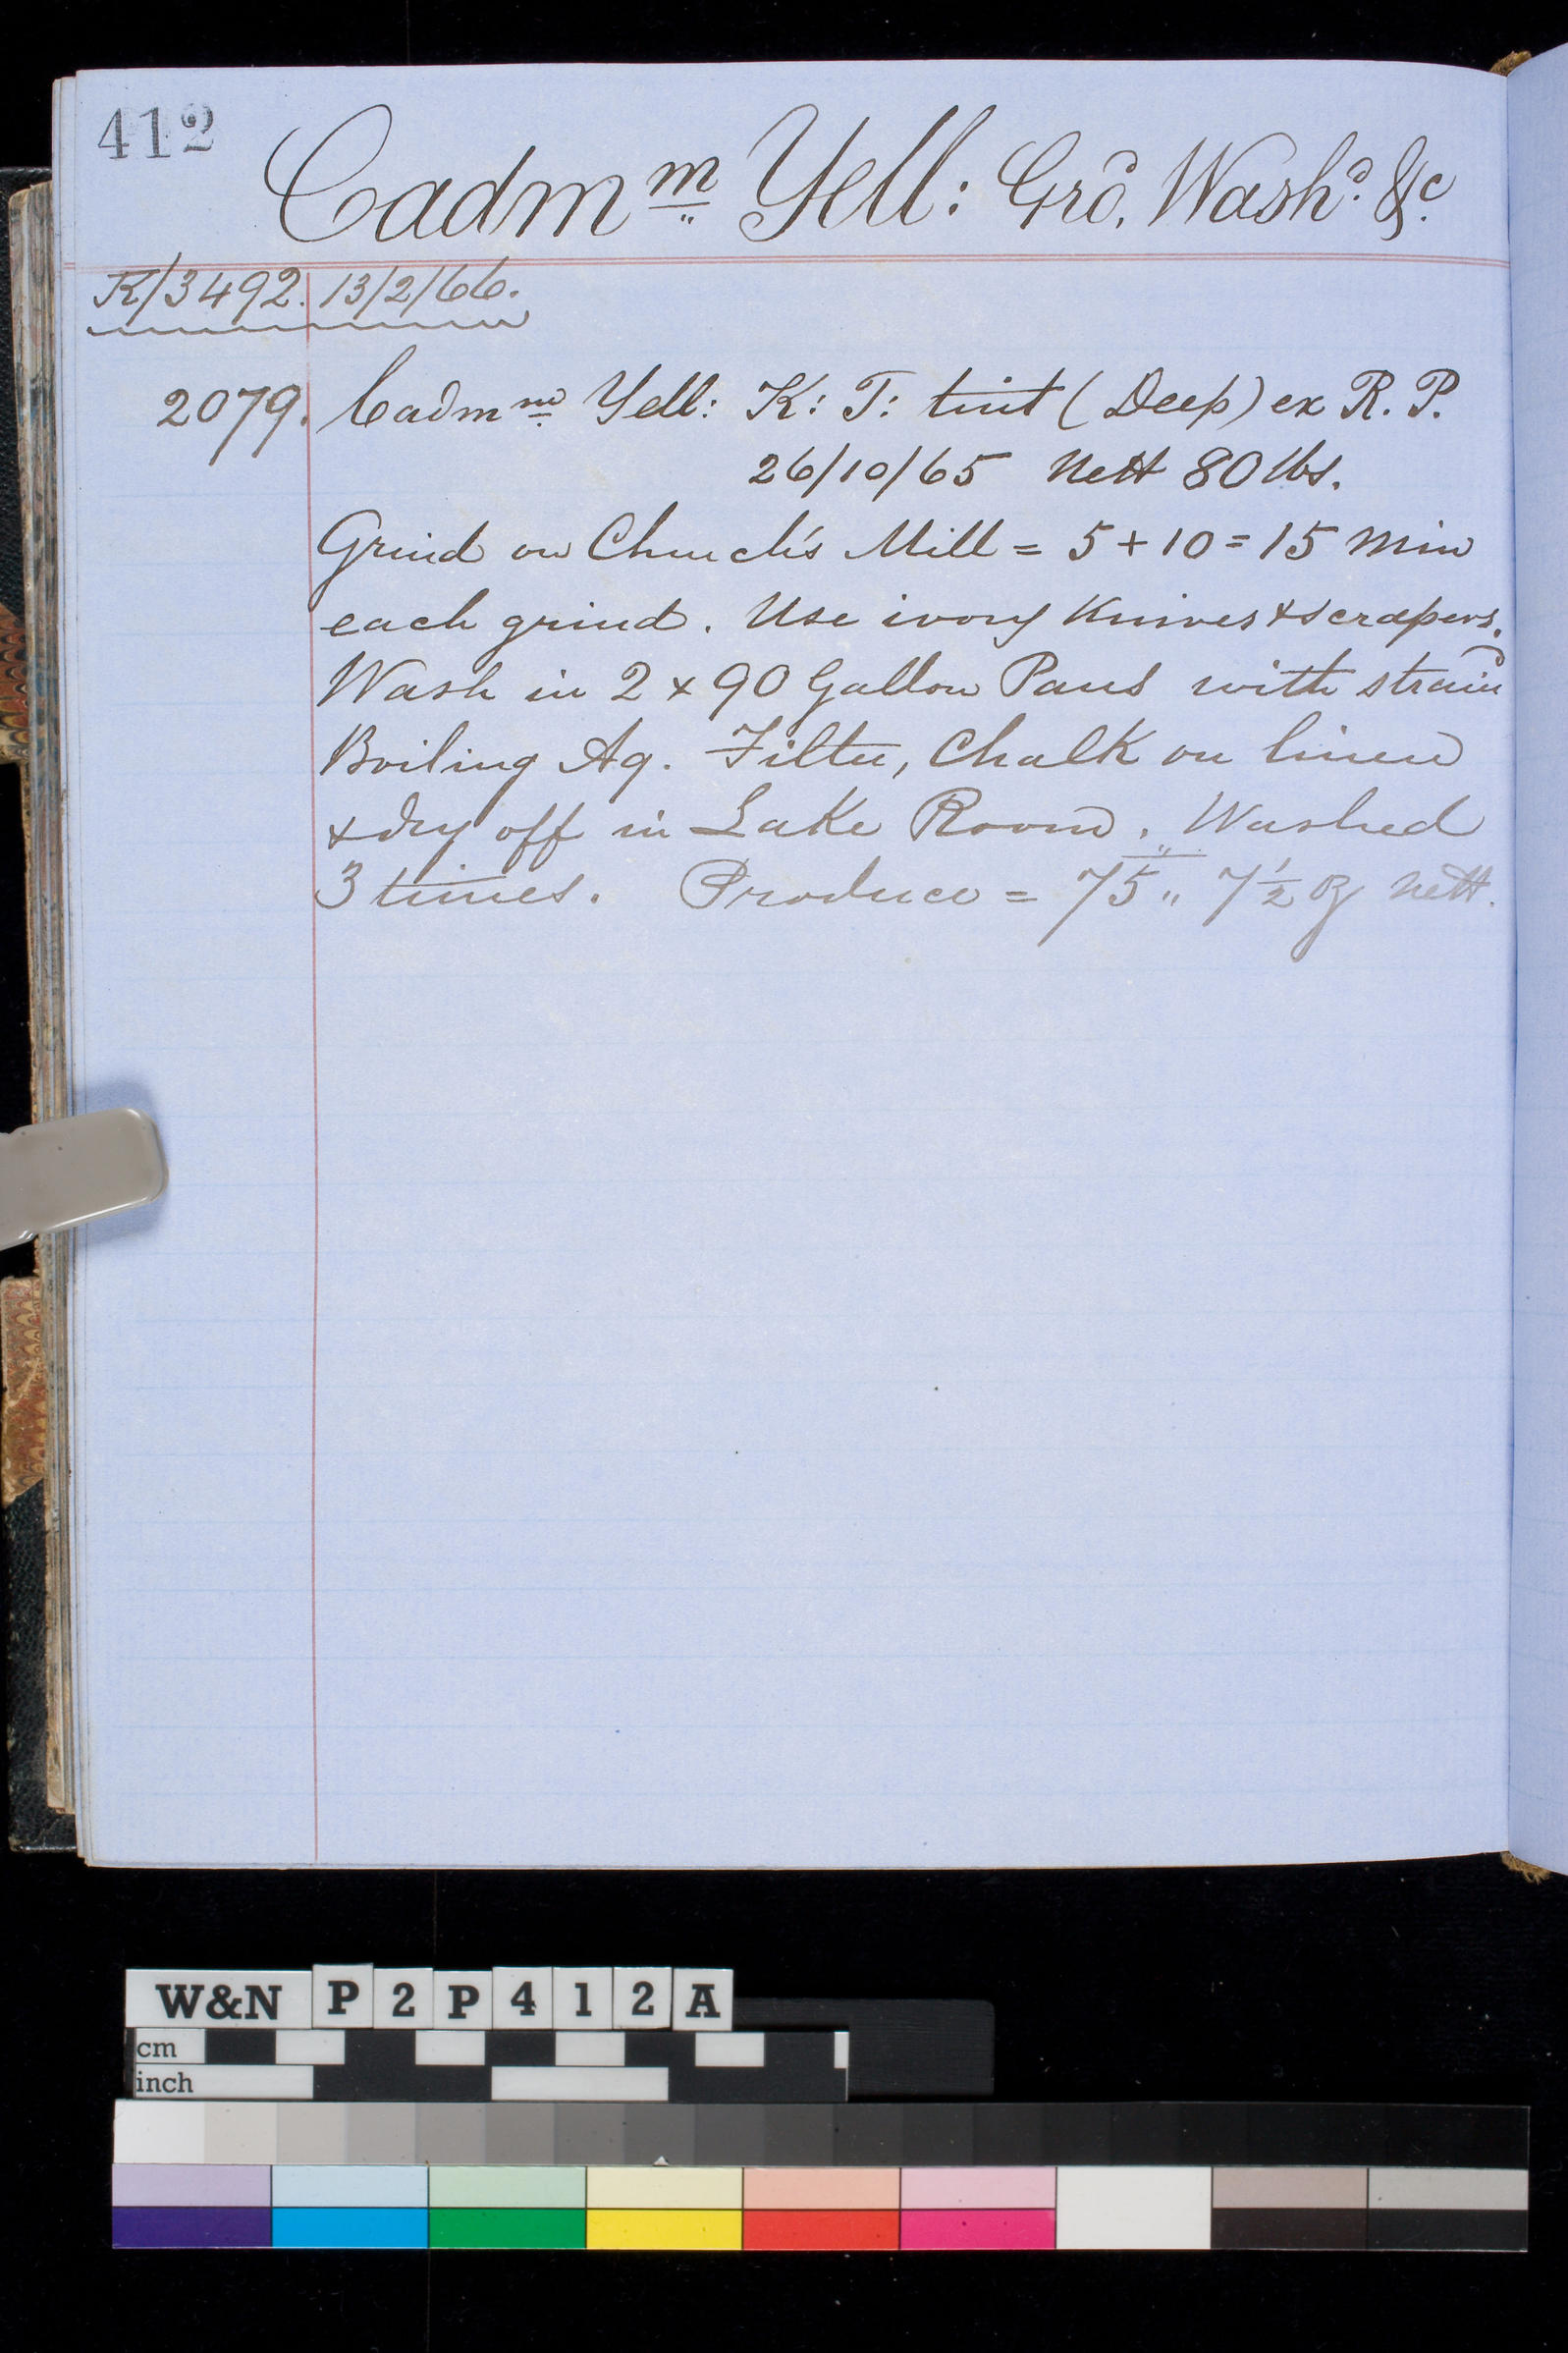 412
Cadm m Yell: Grd, Washd &c.
K/3492. 13/2/66.
2079. Cadm m Yell: K: T: tint (Deep) ex R. P.
26/10/65 Nett 80 lbs.
Grind on Church's Mill = 5 + 10 = 15 Min
each grind. Use ivory Knives + scrapers.
Wash in 2 x 90 Gallon Pans with straind
Boiling Aq. Filter, Chalk on linen
+ dry off in Lake Room. Washed
3 times. Produce = 75 " 7 1/2 oz nett.
W&N P2P412A
cm
inch